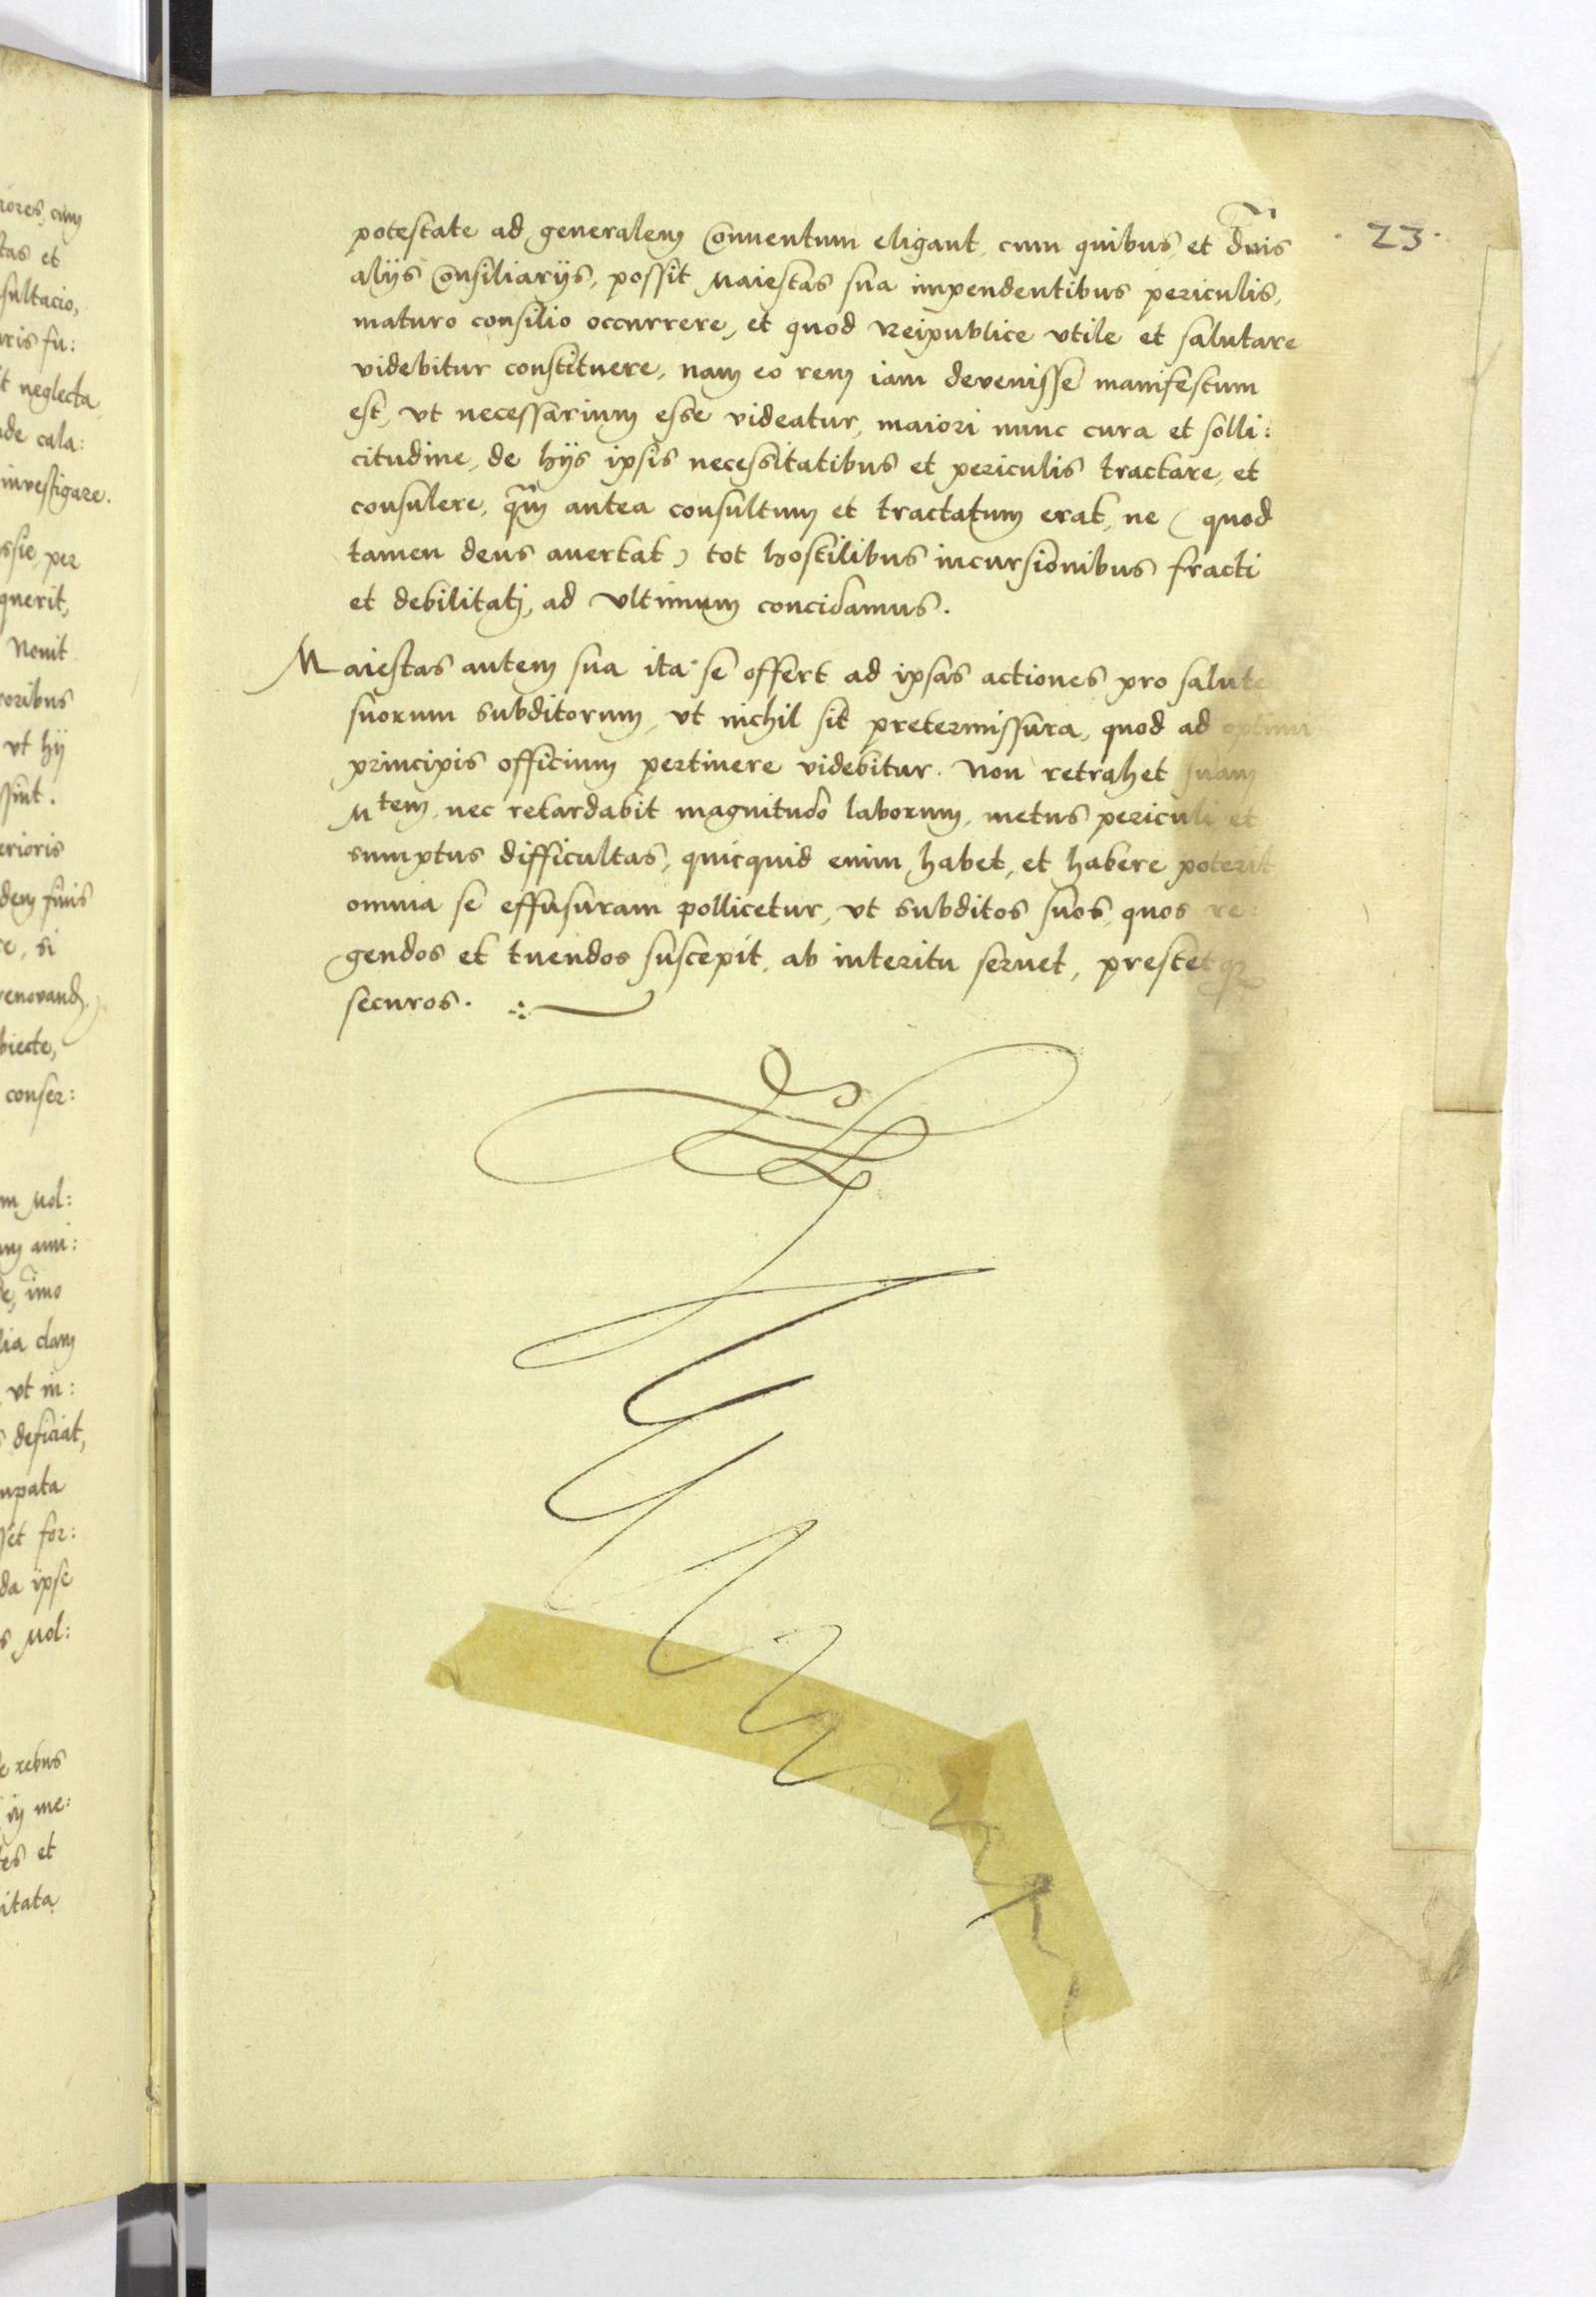 · 23 ·
potestate ad generalem Conuentum eligant, cum quibus, et dnis
alijs Consiliarijs, possit Maiestas sua impendentibus periculis,
maturo consilio occurrere, et quod Reipublice vtile et salutare
videbitur constituere, nam eo rem iam devenisse manifestum
est, vt necessarium esse videatur, maiori nunc cura et solli:
citudine, de hijs ipsis necessitatibus et periculis tractare, et
consulere, qm antea consultum et tractatum erat, ne (quod
tamen deus auertat) tot hostilibus incursionibus fracti
et debilitatj, ad vltimum concidamus.
Maiestas autem sua ita se offert ad ipsas actiones pro salute
suorum subditorum, vt nichil sit pretermissura, quod ad optimi
principis officium pertinere videbitur. Non retrahet suam
Mtem, nec retardabit magnitudo laborum, metus periculi et
sumptus difficultas, quicquid enim habet, et habere poterit
omnia se effusuram pollicetur, vt subditos suos, quos re:
gendos et tuendos suscepit, ab interitu seruet, prestetq
securos.
rores, cum
tas et
sultacio,
uris fu:
t neglecta
de cala:
investigare.
ssie, per
querit,
Nouit
roribus
vt hij
ssint.
erioris
dem finis
re, si
renovand
biecte,
conser:
m Mol:
um ani:
e, imo
lia clam
vt in:
deficiat,
upata
set for:
da ipse
s Mol:
e rebus
in me:
tes et
itata